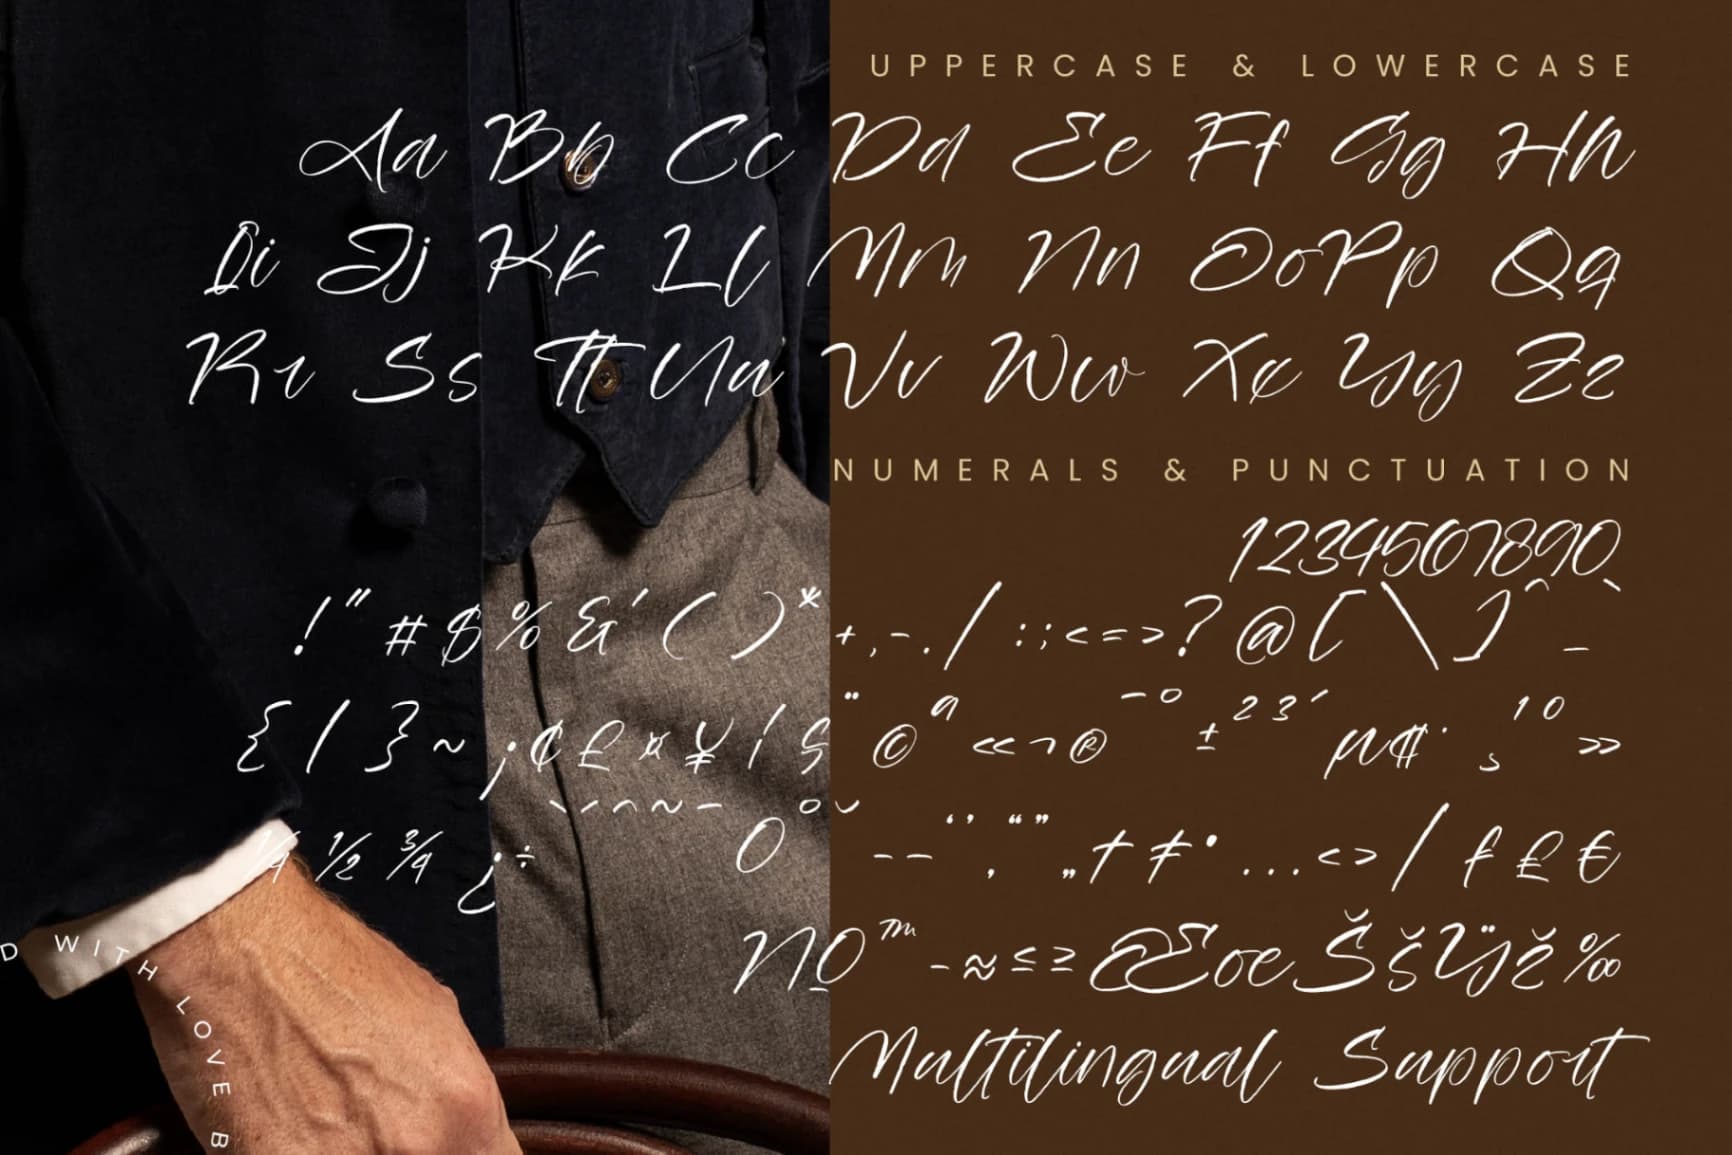 UPPERCASE & LOWERCASE
Aa Bb Cc Dd Ee Ff Gg Hh
Ii Jj Kk Ll Mm Nn Oo Pp Qq
Rr Ss Tt Uu Vv Ww Xx Yy Zz
NUMERALS & PUNCTUATION
1234567890
! " # $ % & ' ( ) * + , - . / : ; < = > ? @ [ \ ] ^ _ `
{ | } ~ ¡ ¢ £ ¤ ¥ ¦ § ¨ © ª « ¬ ® ¯ ° ± ² ³ ´ µ ¶ · ¸ ¹ º »
¼ ½ ¾ ¿ ÷ – — ‘ ’ ‚ “ ” „ † ‡ • … ‹ › ⁄ £ €
№ ™ − ≈ ≤ ≥ Œ œ Š š Ÿ ž ‰
Multilingual Support
D WITH LOVE B